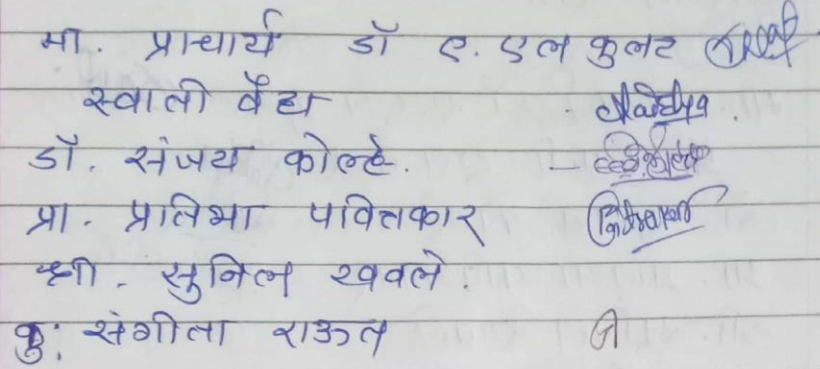 मा. प्राचार्य डॉ ए. एल कुलट
स्वाती वैद्य
डॉ. संजय कोल्हे.
प्रा. प्रतिभा पवित्रकार
श्री. सुनिल खवले.
कु. संगीता राऊत